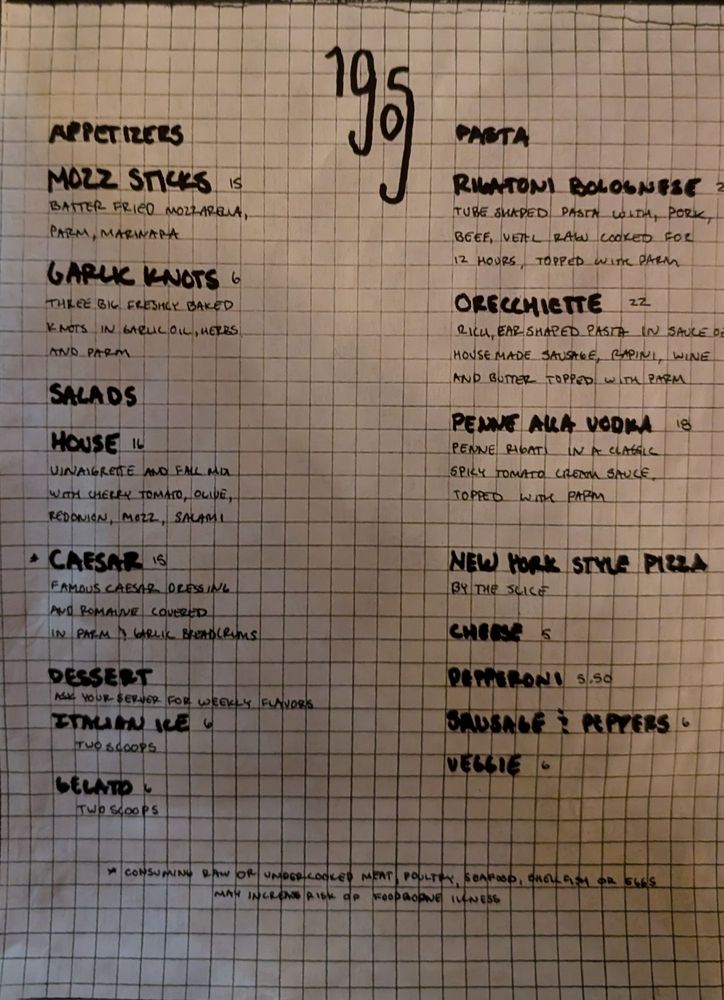 1905
APPETIZERS
MOZZ STICKS 15
BATTER FRIED MOZZARELLA,
PARM, MARINARA
GARLIC KNOTS 6
THREE BIG FRESHLY BAKED
KNOTS IN GARLIC OIL, HERBS
AND PARM
SALADS
HOUSE 16
VINAIGRETTE AND FALL MIX
WITH CHERRY TOMATO, OLIVE,
RED ONION, MOZZ, SALAMI
* CAESAR 15
FAMOUS CAESAR DRESSING
AND ROMAINE COVERED
IN PARM & GARLIC BREADCRUMS
DESSERT
ASK YOUR SERVER FOR WEEKLY FLAVORS
ITALIAN ICE 6
TWO SCOOPS
GELATO 6
TWO SCOOPS
PASTA
RIGATONI BOLOGNESE 2
TUBE SHAPED PASTA WITH, PORK,
BEEF, VEAL RAW COOKED FOR
12 HOURS, TOPPED WITH PARM
ORECCHIETTE 22
RICH, EAR SHAPED PASTA IN SAUCE OF
HOUSE MADE SAUSAGE, RAPINI, WINE
AND BUTTER TOPPED WITH PARM
PENNE ALLA VODKA 18
PENNE RIGATI IN A CLASSIC
SPICY TOMATO CREAM SAUCE,
TOPPED WITH PARM
NEW YORK STYLE PIZZA
BY THE SLICE
CHEESE 5
PEPPERONI 5.50
SAUSAGE & PEPPERS 6
VEGGIE 6
* CONSUMING RAW OR UNDERCOOKED MEAT, POULTRY, SEAFOOD, SHELLFISH OR EGGS
MAY INCREASE RISK OF FOODBORNE ILLNESS